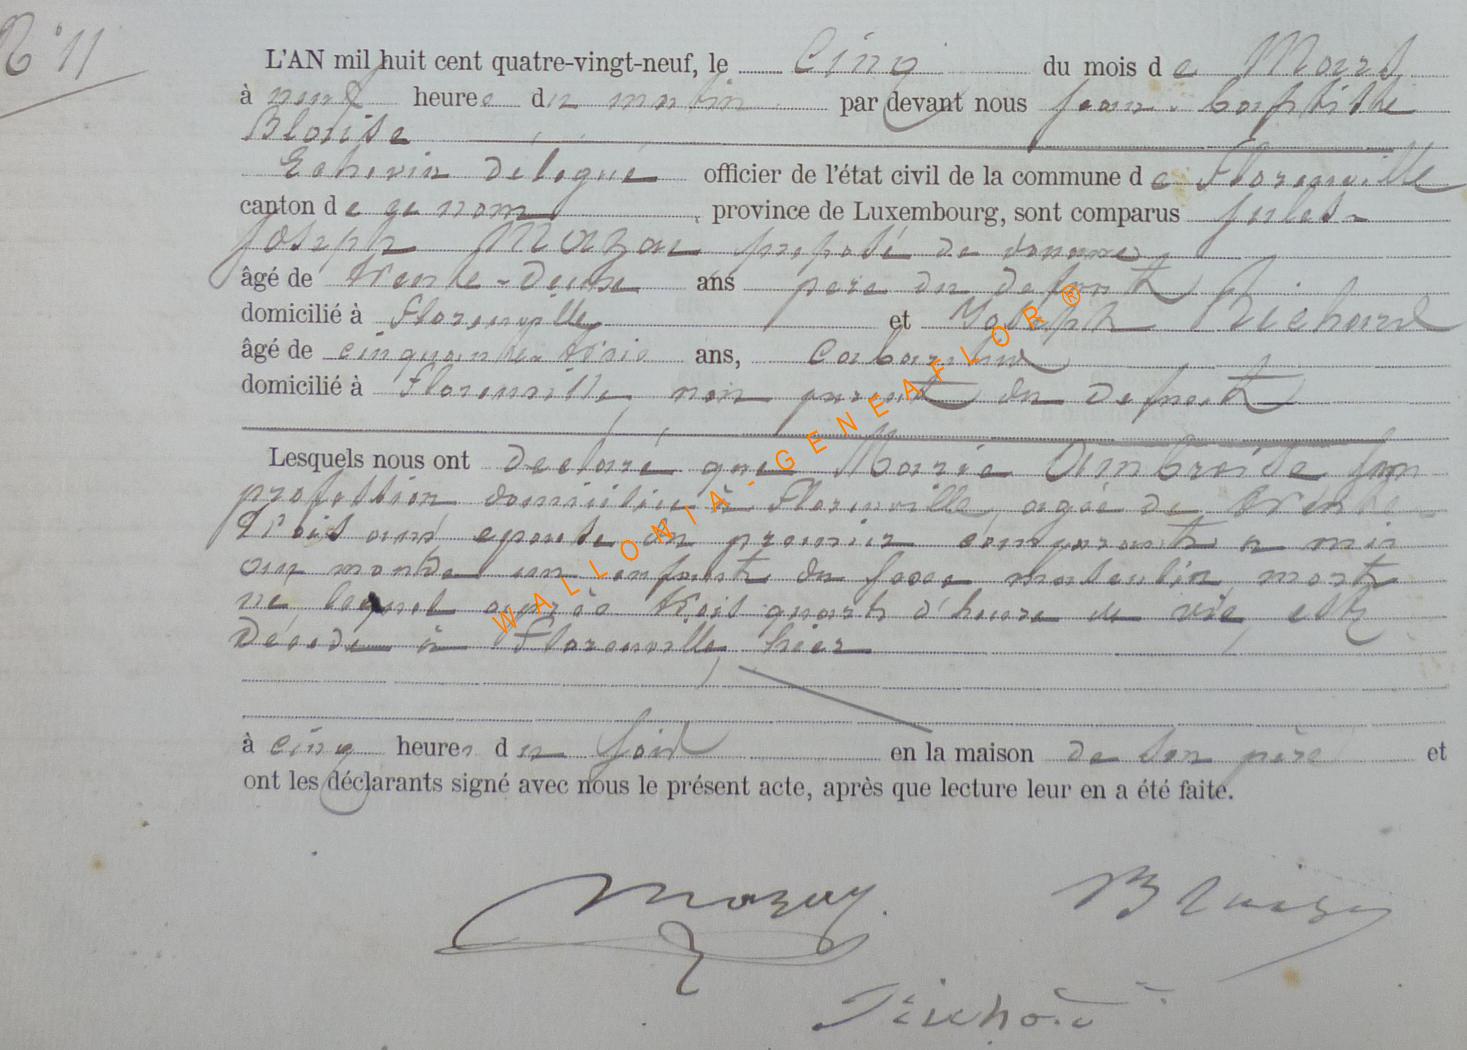 N° 11
L'AN mil huit cent quatre-vingt-neuf, le Cinq du mois de Mars
à neuf heures du matin par devant nous Jean-Baptiste
Blaise
Echevin délégué officier de l'état civil de la commune de Florenville
canton de ce nom, province de Luxembourg, sont comparus Jules-
Joseph Mazay préposé de douanes
âgé de trente-deux ans père du défunt
domicilié à Florenville et Joseph Richard
âgé de cinquante-trois ans, cabaretier
domicilié à Florenville, non parent du défunt
Lesquels nous ont déclaré que Marie Ambroise sans
profession domiciliée à Florenville, agée de trente-
trois ans épouse du premier comparant a mis
au monde un enfant du sexe masculin, mort
né lequel après trois quart d'heure de vie, est
décédé à Florenville, hier
à cinq heures du soir en la maison de son père et
ont les déclarants signé avec nous le présent acte, après que lecture leur en a été faite.
Mazay
Richard
WALLONIA-GENEAFLOR®